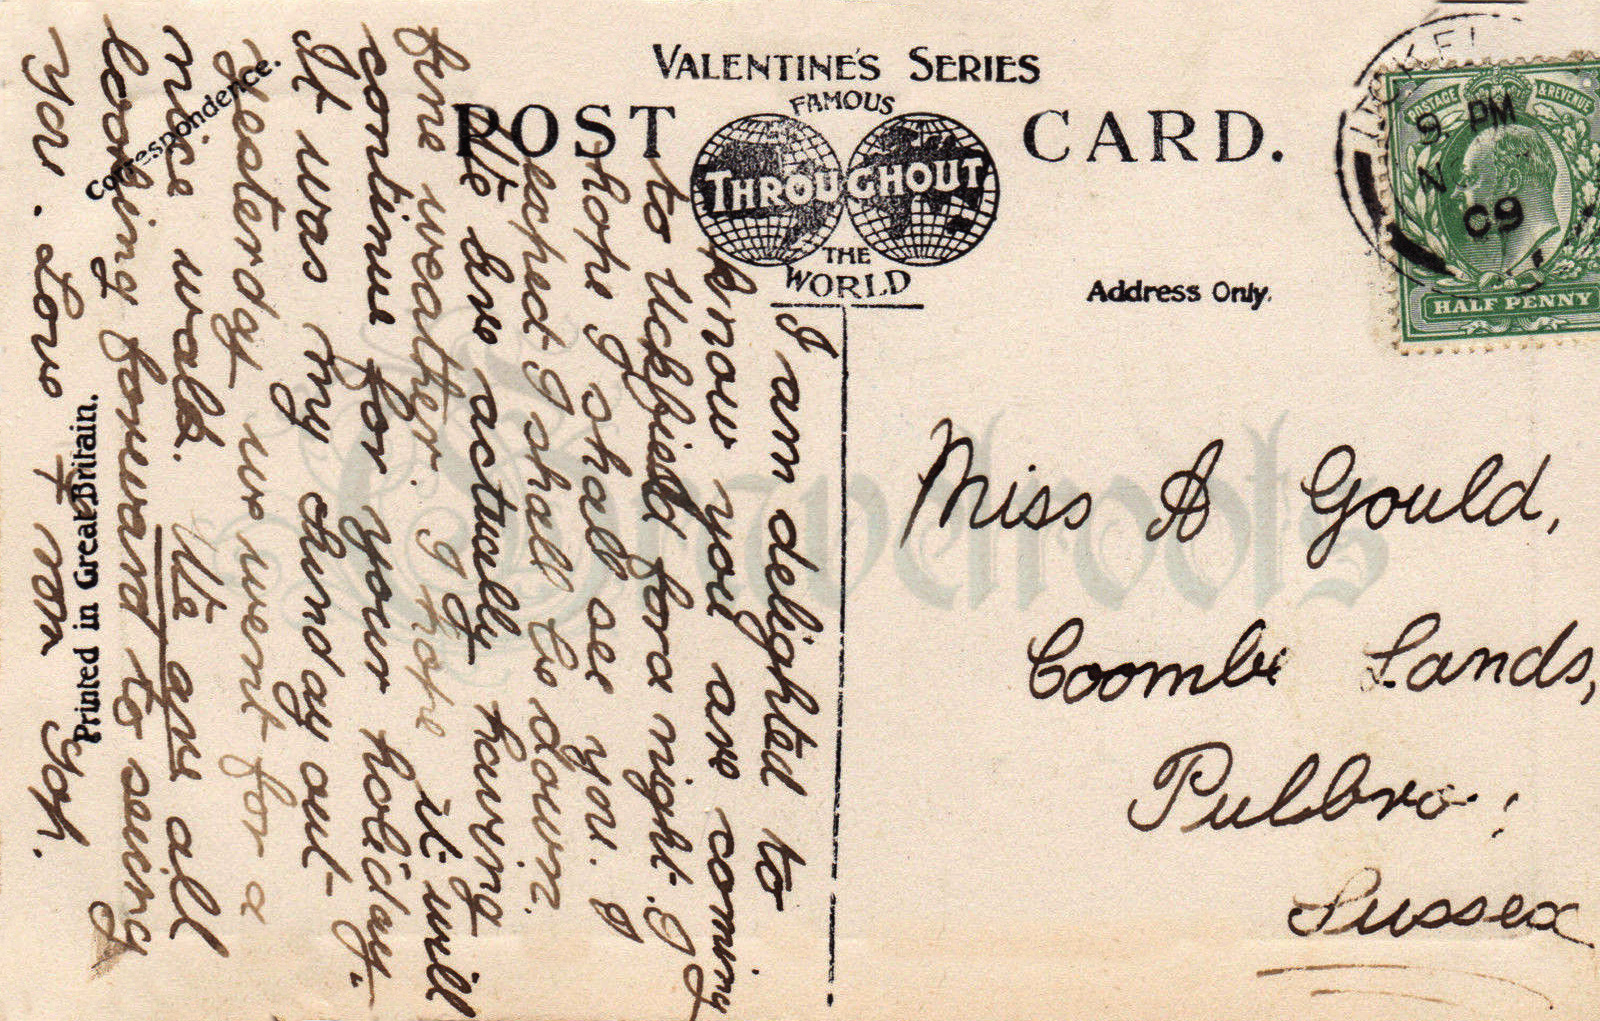 VALENTINE'S SERIES
FAMOUS
POST CARD.
THROUGHOUT
THE
WORLD
Correspondence.
Address Only.
Printed in Great Britain.
POSTAGE & REVENUE
HALF PENNY
UCKFI
9 PM
N
09
I am delighted to
know you are coming
to Uckfield for a night. I
hope I shall see you. I
expect I shall be down.
We are actually having
fine weather. I hope it will
continue for your holiday.
It was my Sunday out
yesterday we went for a
nice walk. We are all
looking forward to seeing
you. Love
Miss A Gould,
Coombe Lands,
Pulbro;
Sussex